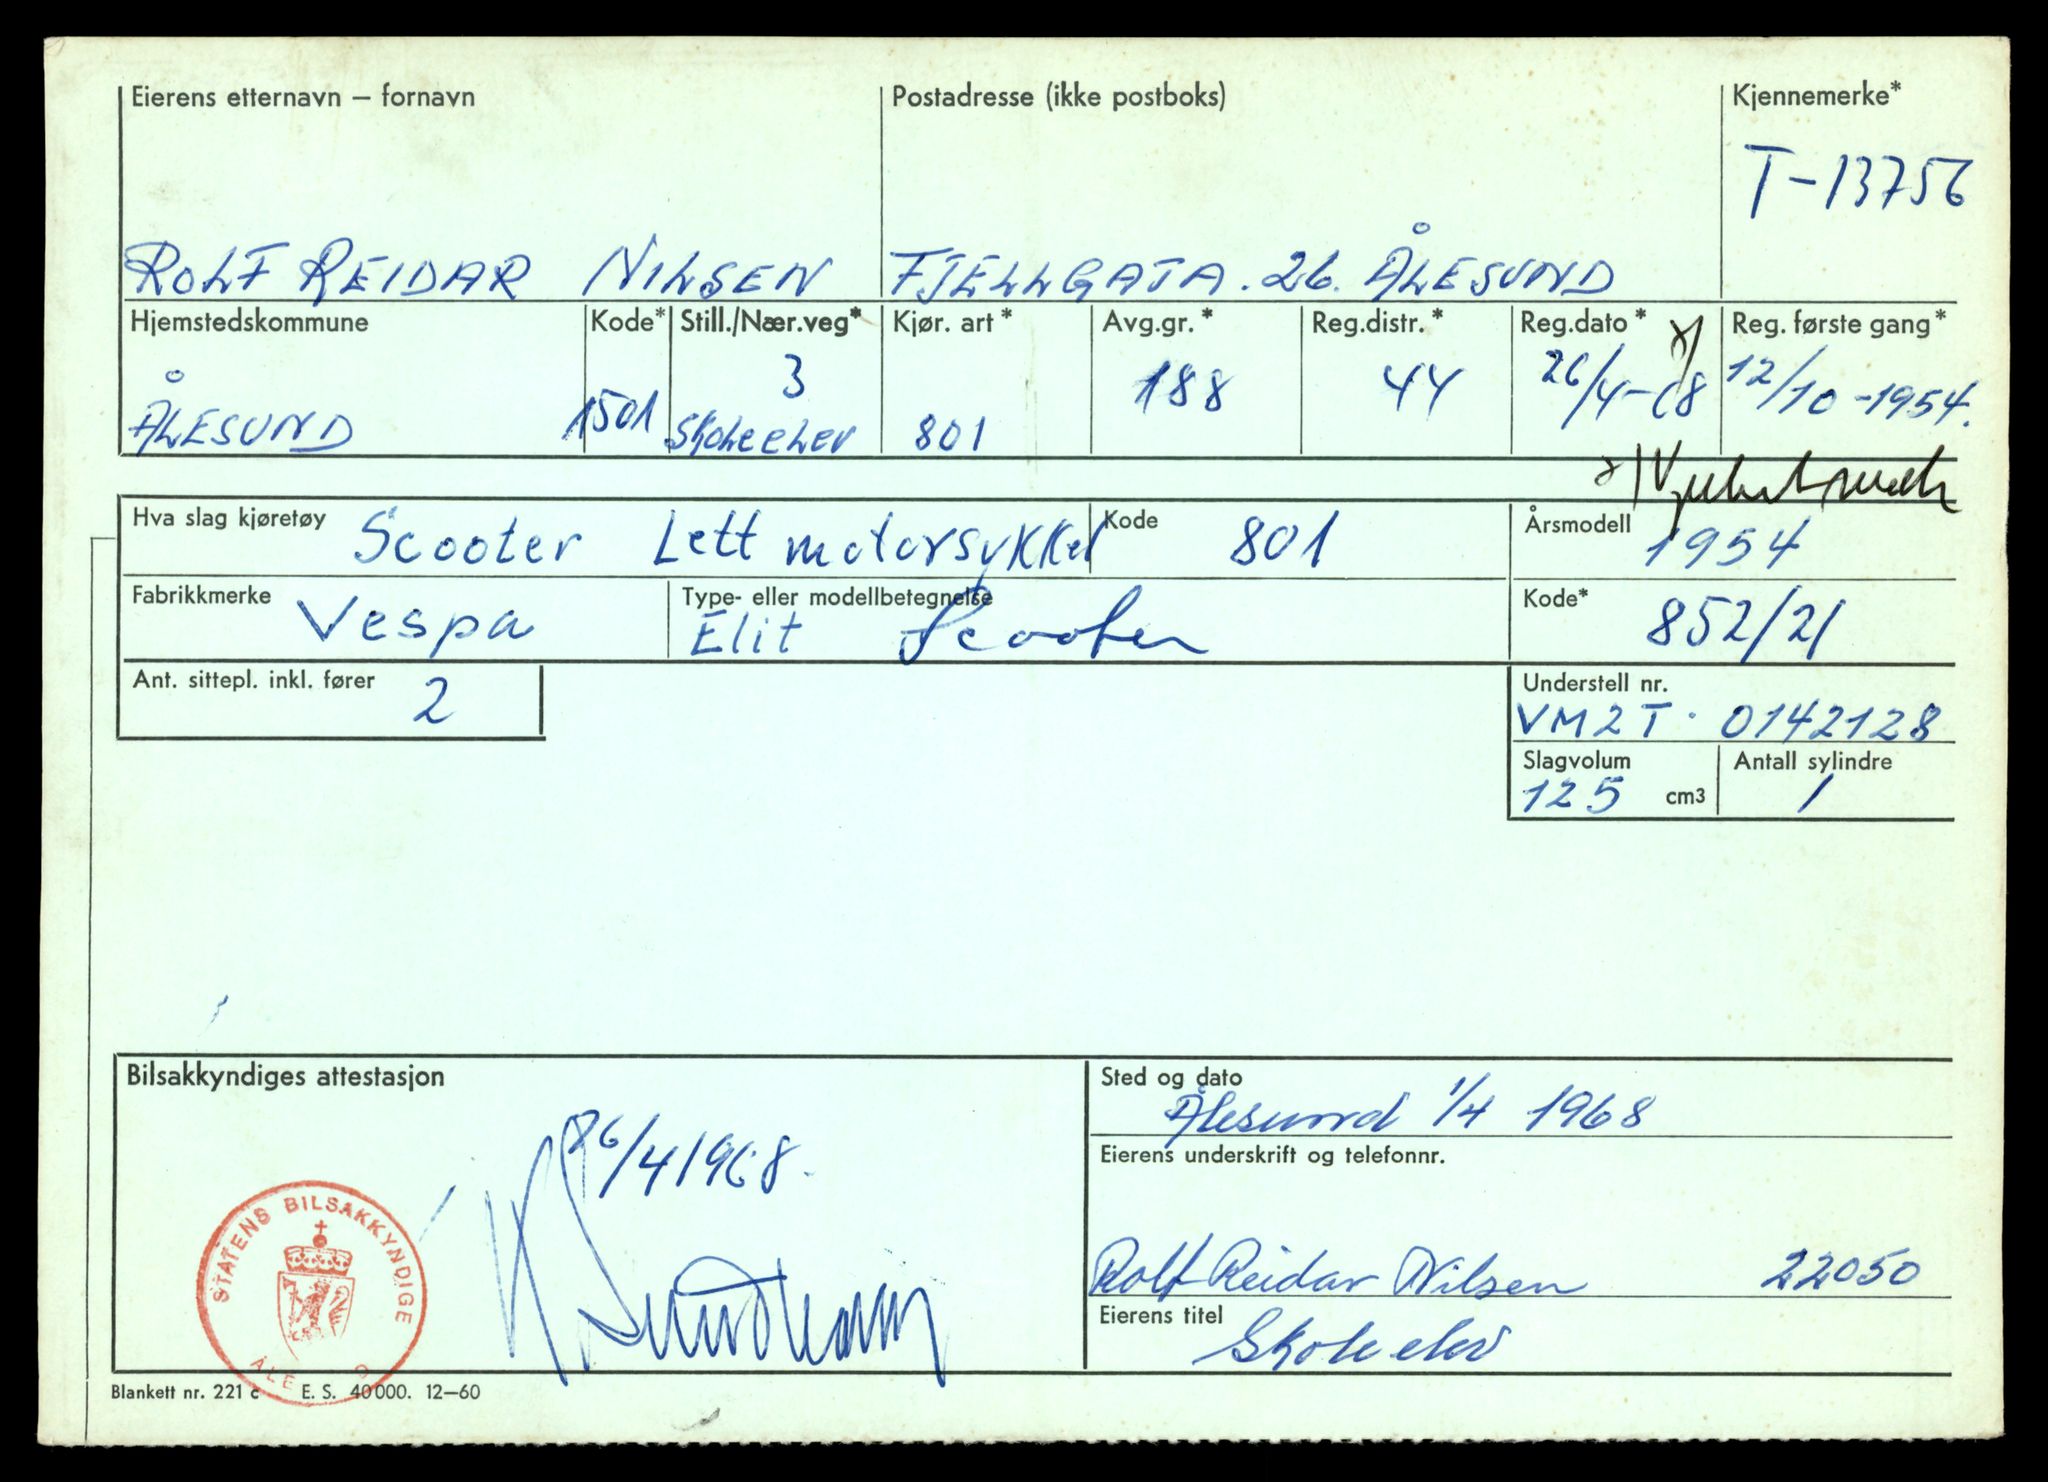 Eierens etternavn – fornavn
Postadresse (ikke postboks)
Kjennemerke*
T-13756
ROLF REIDAR NILSEN
FJELLGATA. 26. ÅLESUND
Hjemstedskommune
Kode*
Still./Nær.veg*
Kjør. art*
Avg.gr.*
Reg.distr.*
Reg.dato*
x/
Reg. første gang*
ÅLESUND
1501
3
Skoleelev
801
188
44
26/4-68
12/10-1954.
x/
Hva slag kjøretøy
Scooter Lett motorsykkel
Kode
801
Årsmodell
1954
Fabrikkmerke
Vespa
Type- eller modellbetegnelse
Elit Scooter
Kode*
852/21
Ant. sittepl. inkl. fører
2
Understell nr.
VM2T. 0142128
Slagvolum
125 cm3
Antall sylindre
1
Bilsakkyndiges attestasjon
26/4 1968.
STATENS BILSAKKYNDIGE
ÅLE D
Sted og dato
Ålesund 1/4 1968
Eierens underskrift og telefonnr.
Rolf Reidar Nilsen 22050
Eierens titel
Skoleelev
Blankett nr. 221 c E. S. 40000. 12–60